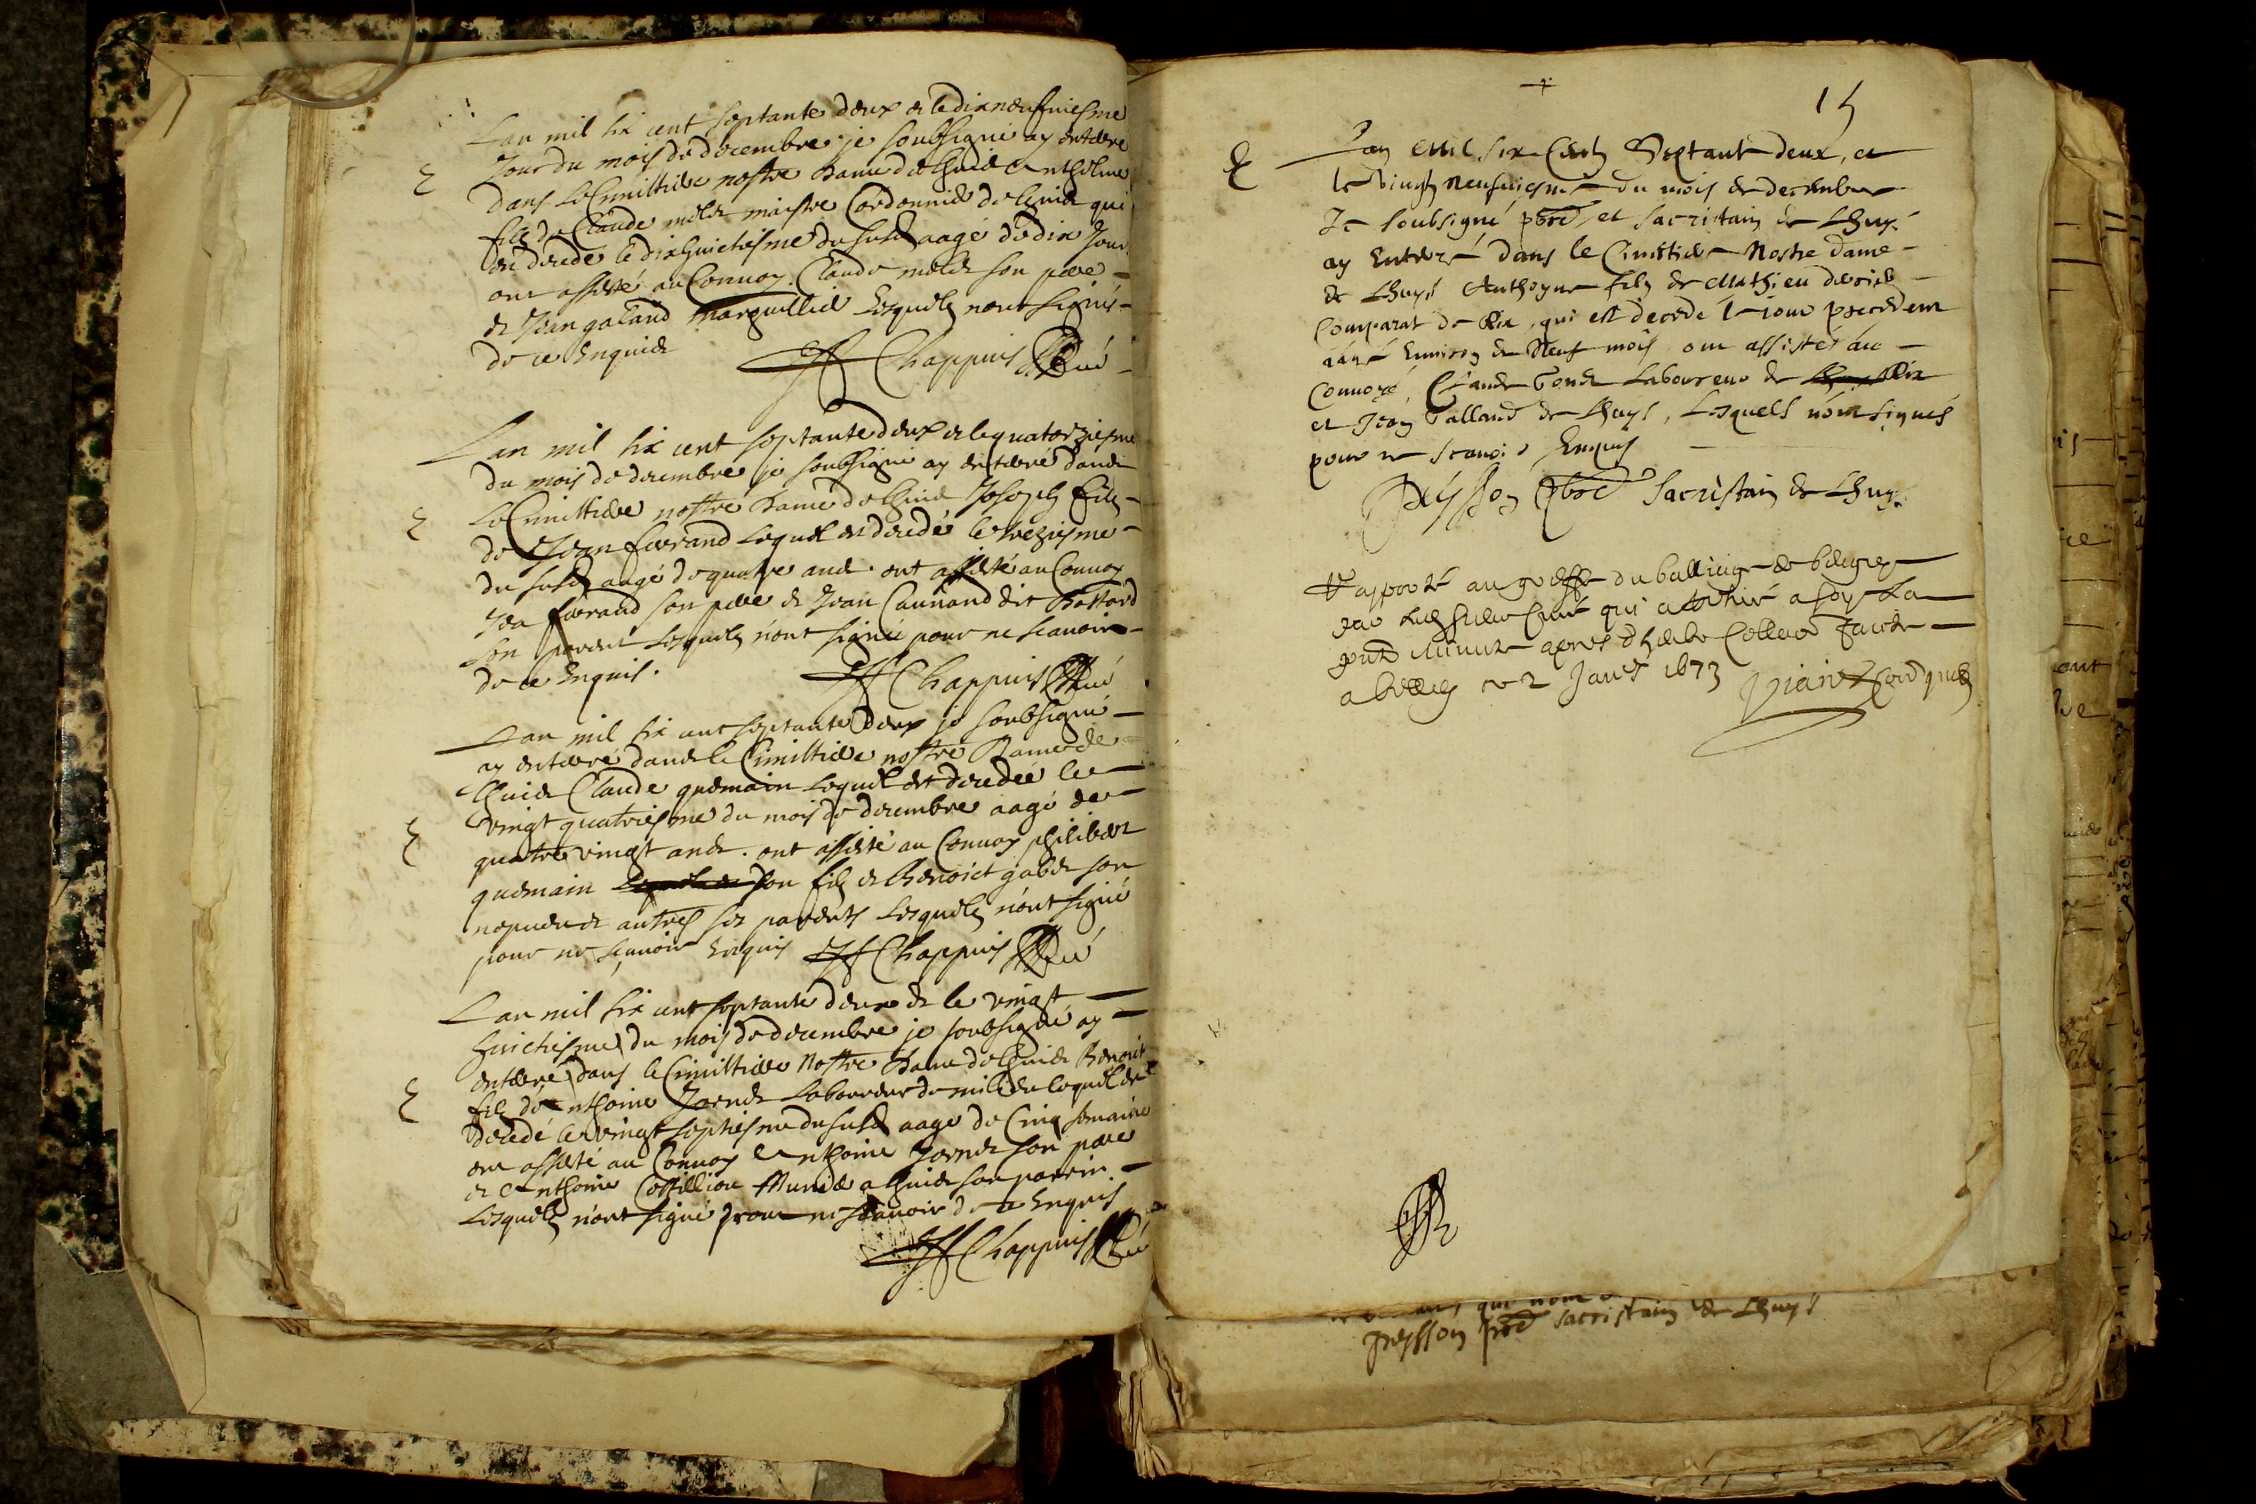 Lan mil six cent septante deux et le dixneufviesme
Jour du mois de decembre je soubsigné ay enterré
dans le Cimittiere nostre Dame de lhuis Anthelme
filz de Claude maistre Cordonnier de lhuis qui
est decede le dixhuictiesme du susd aagé de dix Jours
ont assisté au Convoy Claude son pere
et Jean galand marguillier lesquels nont signés
de ce enquis
Chappuis Curé
Lan mil six cent septante deux et le quatorziesme
du mois de decembre je soubsigné ay enterré dans
le Cimittiere nostre Dame de lhuis Joseph filz
de Jean ferrand lequel est decedé le treziesme
du susd aagé de quatre ans ont assisté au Convoy
Jea ferrand son pere et Jean dit
son parent lesquels n'ont signé pour ne scavoir
de ce enquis.
Chappuis Curé
Lan mil six cent septante deux je soubsigné
ay enterré dans le Cimittiere nostre Dame de
lhuis Claude quemain lequel est decedé le
vingt quatriesme du mois de decembre aagé de
quatre vingt ans. ont assisté au Convoy philibert
quemain son filz et Benoict son
nepveu et autres ses parents lesquels n'ont signé
pour ne scavoir enquis Chappuis Curé
Lan mil six cent septante deux et le vingt
huictiesme du mois de decembre je soubsigné ay
enterré dans le Cimittiere Nostre Dame de lhuis Benoict
filz de Anthoine Laboureur de lequel est
decedé le vingt septiesme du susd aagé de Cinq semaines
ont assisté au Convoy Anthoine son pere
et Anthoine a lhuis son parrin.
Lesquels n'ont signé pour ne scavoir de ce enquis
Chappuis Curé
15
Lan Mil six Cents Septante deux, et
le vingt neufviesme du mois de decembre
Je soubsigné pbre, et sacristain de Lhuys
ay Enterré dans le Cimittiere Nostre Dame
de Lhuys Anthoyne filz de Mathieu
Comparat de Rix, qui est decedé le jour precedent
aagé Environ de Neuf mois, ont assistés au
Convoye, Claude Laboureur de Rix
et Jean Galland de Lhuys, Lesquels n'ont signés
pour ne scavoir Enquis
Peysson pbre Sacristain de Lhuys
Rapporté au greffe du balliage de beugey
par led sieur Curé qui a retiré a soy La
minutte apres dheue Collaon faicte
a belley ce 2 Janer 1673
Peysson pbre sacristain de Lhuys